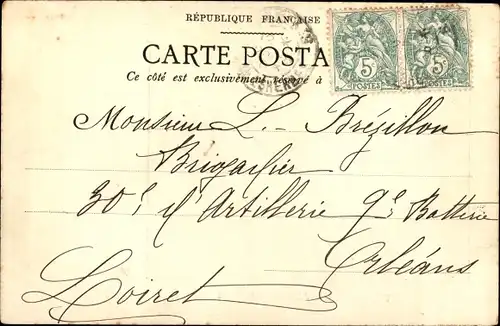 RÉPUBLIQUE FRANÇAISE
CARTE POSTA
Ce côté est exclusivement réservé à
5c 5c
POSTES POSTES
Monsieur L. Brézillon
Brigadier
30e d'Artillerie 9e Batterie
Orléans
Loiret